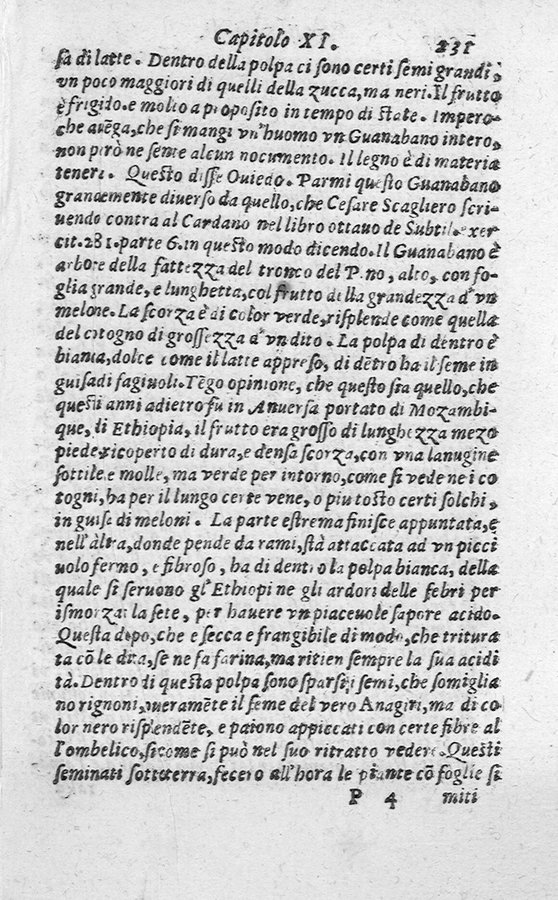 Capitolo XI. 231
sa di latte. Dentro della polpa ci sono certi semi grandi,
vn poco maggiori di quelli della zucca, ma neri. Il frutto
è frigido e molto a proposito in tempo di state. Impero-
che auẽga, che si mangi vn'huomo vn Guanabano intero,
non però ne sente alcun nocumento. Il legno è di materia
tenera. Questo disse Ouiedo. Parmi questo Guanabano
grandemente diuerso da quello, che Cesare Scagliero scri-
uendo contra al Cardano nel libro ottauo de Subtil. exer
cit. 281. parte 6. in questo modo dicendo. Il Guanabano è
arbore della fattezza del tronco del Pino, alto, con fo-
glia grande, e lunghetta, col frutto della grandezza d'vn
melone. La scorza è di color verde, risplende come quella
del cotogno di grossezza d'vn dito. La polpa di dentro è
bianca, dolce come il latte appreso, di dẽtro ha il seme in
guisa di fagiuoli. Tẽgo opinione, che questo sia quello, che
questi anni adietro fu in Anuersa portato di Mozambi-
que, di Ethiopia, il frutto era grosso di lunghezza mezo
piede, ricoperto di dura, e densa scorza, con vna lanugine
sottile e molle, ma verde per intorno, come si vede ne i co
togni, ha per il lungo certe vene, o piu tosto certi solchi,
in guisa di meloni. La parte estrema finisce appuntata, e
nell'àltra, donde pende da rami, stà attaccata ad vn picci
uolo fermo, e fibroso, ha di dentro la polpa bianca, della
quale si seruono gl'Ethiopi ne gli ardori delle febri per
ismorzar la sete, per hauere vn piaceuole sapore acido.
Questa dopo, che e secca e frangibile di modo, che tritura
ta cõ le dita, se ne fa farina, ma ritien sempre la sua acidi
tà. Dentro di questa polpa sono sparsi i semi, che somiglia
no rignoni, ò veramẽte il seme del vero Anagiri, ma di co
lor nero risplendẽte, e paiono appiccati con certe fibre al
l'ombelico, sicome si può nel suo ritratto vedere. Questi
seminati sottoterra, fecero all'hora le piante cõ foglie si
P 4 miti